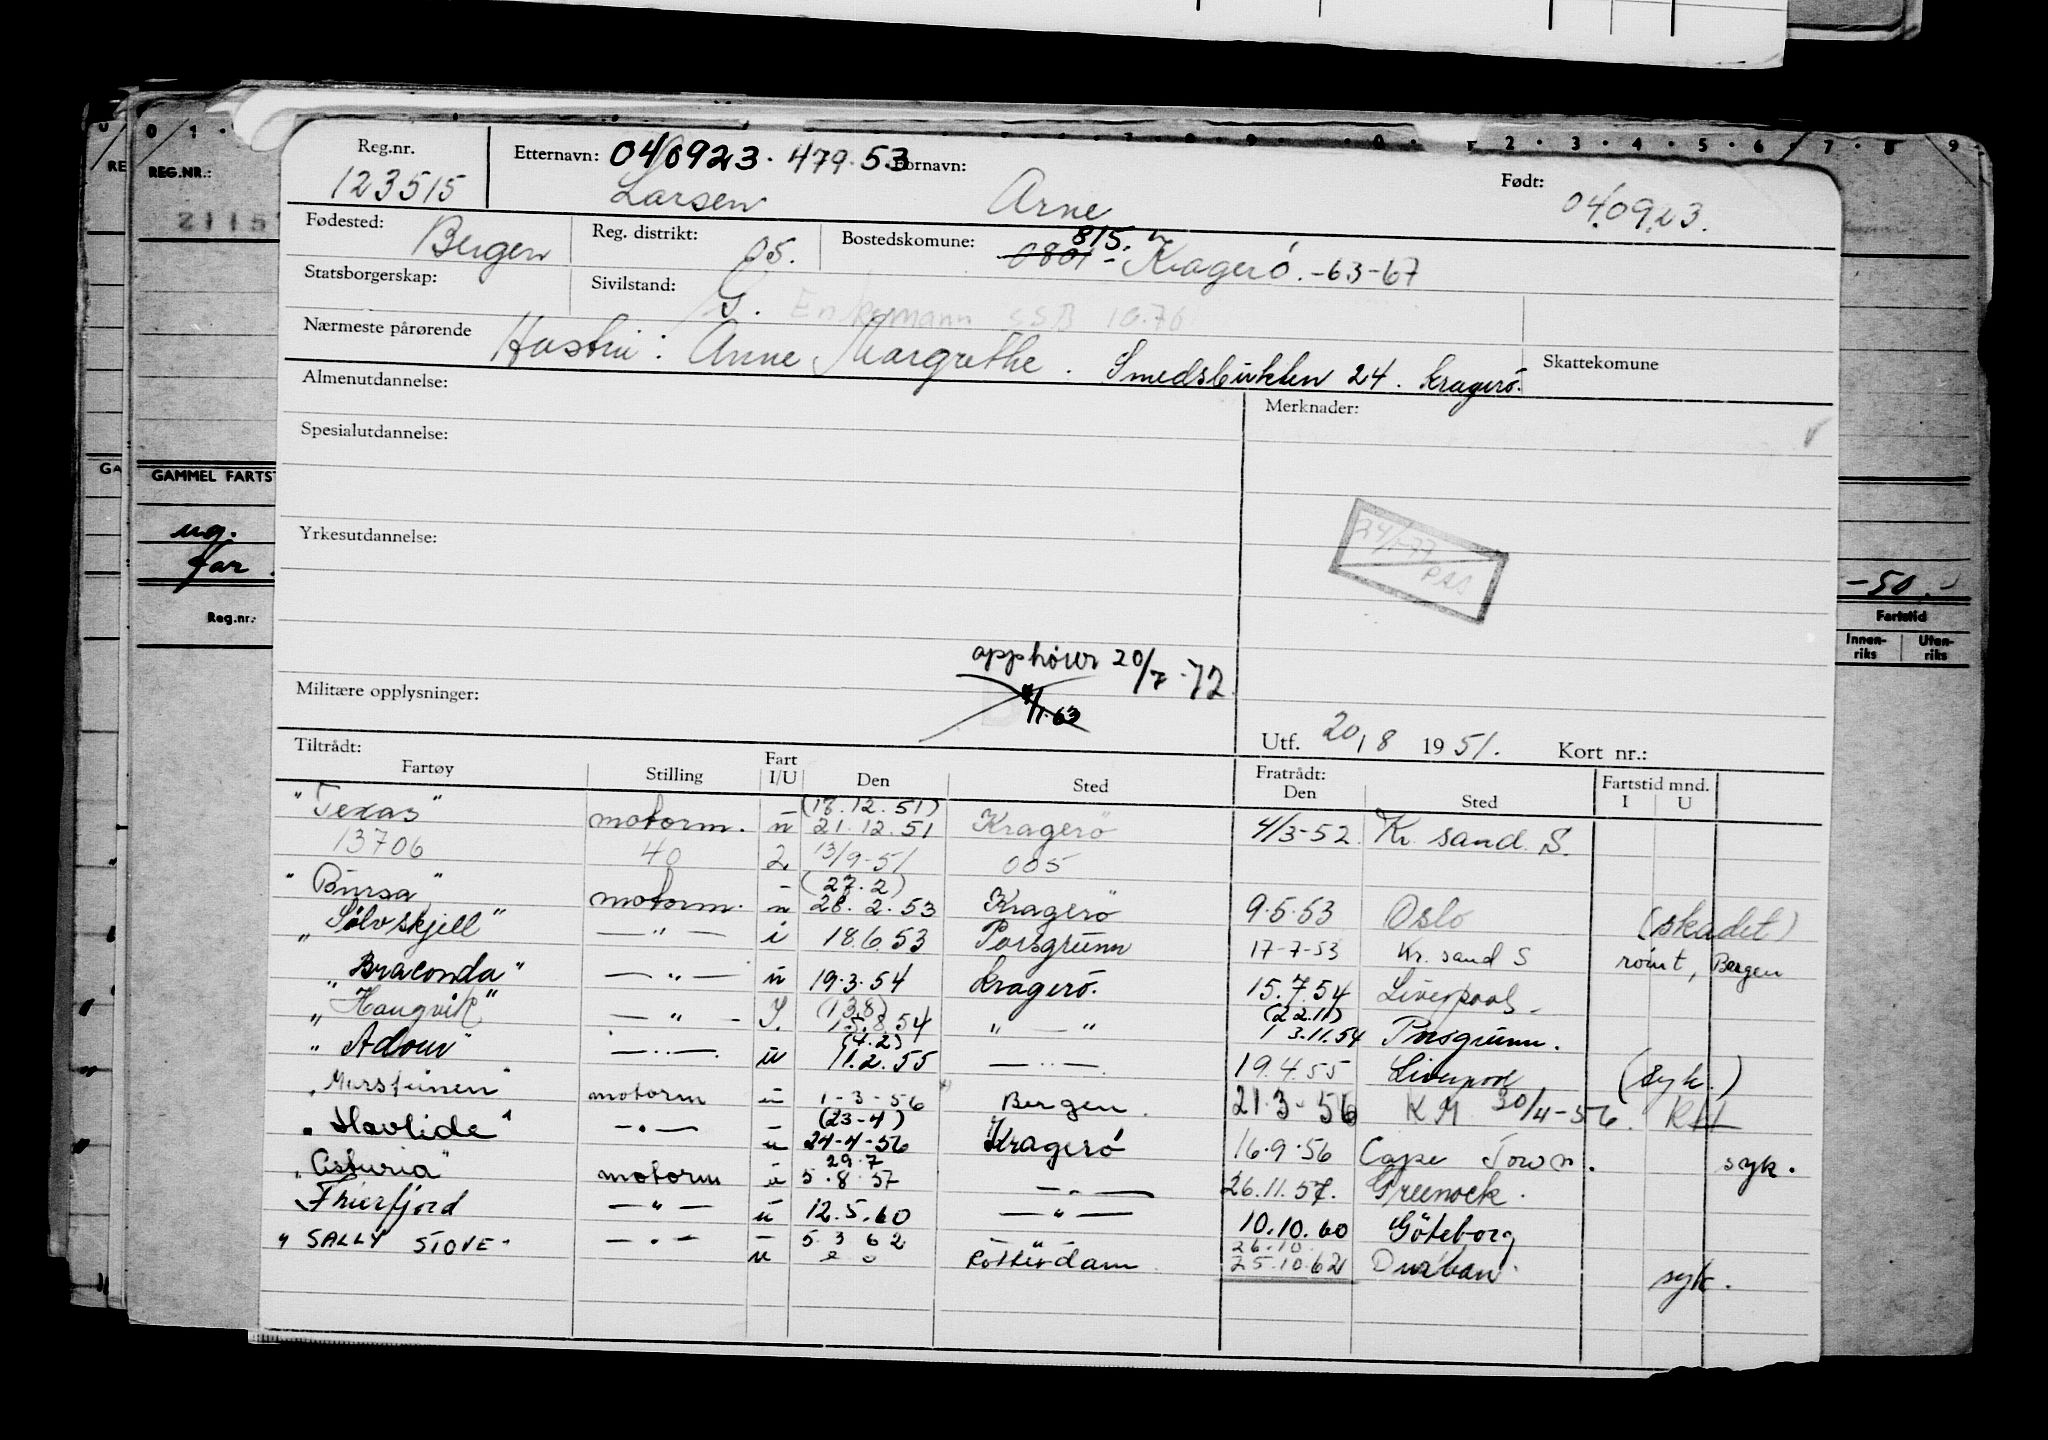 0 1 · 7 · 8 · 9 · 0 · 2 · 3 · 4 · 5 · 6 · 7 · 8 · 9
REG.NR.:
2115
GAMMEL FARTST
ug.
far
Reg.nr.:
-50.-
Fartstid
Innen-riks Uten-riks
Reg.nr. 123515
Etternavn: 040923.479.53 Larsen
Fornavn: Arne
Født: 040923.
Fødested: Bergen
Reg. distrikt: 05.
Bostedskomune: 0801 - 815. Kragerö. -63-67
Statsborgerskap:
Sivilstand: G. Enkemann SSB 10.76
Nærmeste pårørende Hustru: Anne Margrethe. Smedsbukten 24. Kragerö.
Skattekomune
Almenutdannelse:
Merknader:
Spesialutdannelse:
24/1-77
Yrkesutdannelse:
opphører 20/7-72
Militære opplysninger:
Utf. 20/8 1951. Kort nr.:
Tiltrådt: Fratrådt: Fartstid mnd.
Fartøy Stilling Fart I/U Den Sted Den Sted I U
"Texas" motorm. u (18.12.51) 21.12.51 Kragerö 4/3-52 Kr. sand. S.
13706 40 2 13/9-51 005
"Bursa" motorm. u (27.2) 28.2.53 Kragerö 9.5.53 Oslo (skadet)
"Sölvskjell" — " — i 18.6.53 Porsgrunn 17-7-53 Kr. sand S rømt, Bergen
"Braconda" — " — u 19.3.54 Kragerö. 15.7.54 Liverpool.
"Haugvik" — " — I. (13.8) 15.8.54 " — " (22.11) 13.11.54 Porsgrunn.
"Adour" — " —. u (4.2) 11.2.55 — " — 19.4.55 Liverpool (syk.)
"Marsteinen" motorm u 1-3-56 Bergen. 21.3-56 K M 30/4-56.
"Havlide" — " — u (23-4) 24-4-56 Kragerö 16.9.56 Cape Town. syk.
"Asturia" motorm u 29.7 5.8.57 — " — 26.11.57. Greenock.
Thierfjord — " — u 12.5.60 — " — 10.10.60 Göteborg
"SALLY STOVE" — " — u 5 3 62 Rotterdam 26.10. 25.10.62 Durban. syk.